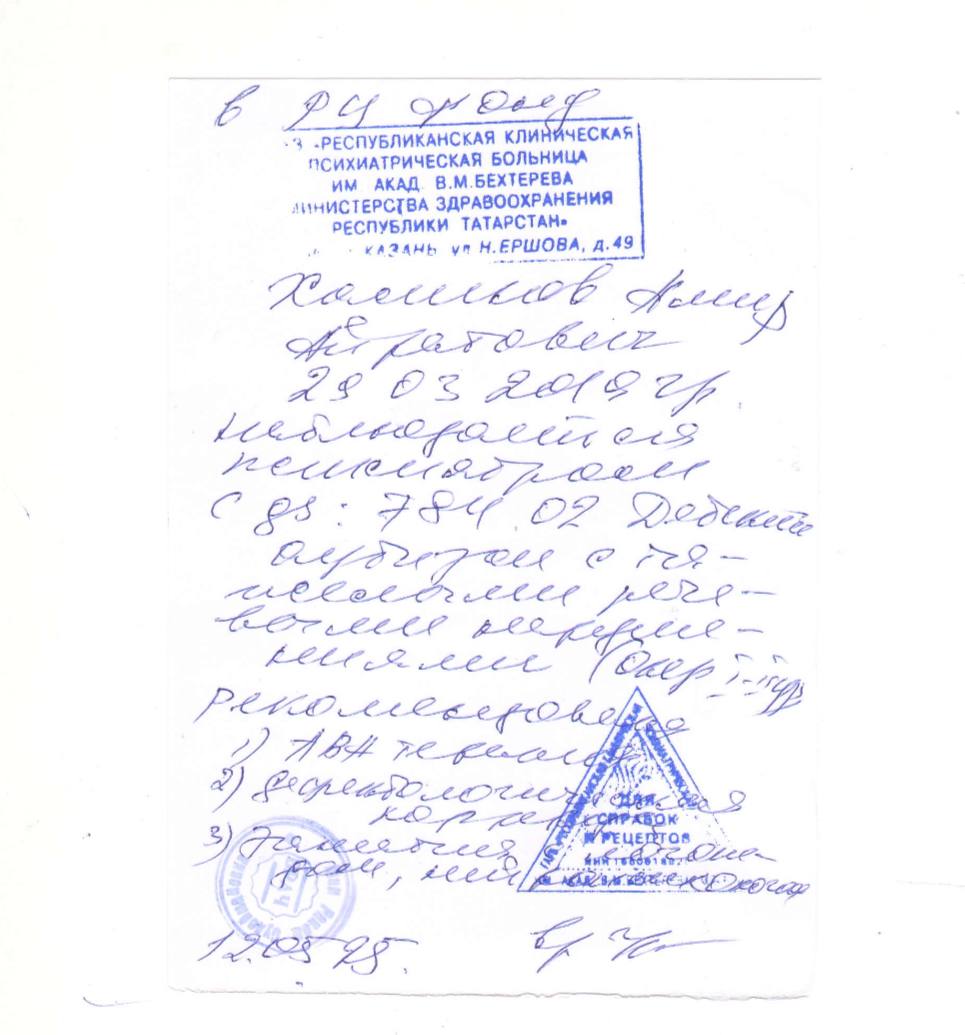 в РЦ фонд
-РЕСПУБЛИКАНСКАЯ КЛИНИЧЕСКАЯ
ПСИХИАТРИЧЕСКАЯ БОЛЬНИЦА
ИМ АКАД. В.М.БЕХТЕРЕВА
МИНИСТЕРСТВА ЗДРАВООХРАНЕНИЯ
РЕСПУБЛИКИ ТАТАРСТАН»
КАЗАНЬ ул Н.ЕРШОВА, д.49
Амир
Айратович
29 03 2019 гр.
наблюдается
психиатром
С ds: F84.02 Детский
аутизм с тя-
желыми рече-
выми наруше-
ниями (
рекомендовано
1) АВА терапия
2) Дефектологическая
коррекция
3) Занятия
12.05 25.
вр
ДЛЯ
СПРАВОК
И РЕЦЕПТОВ